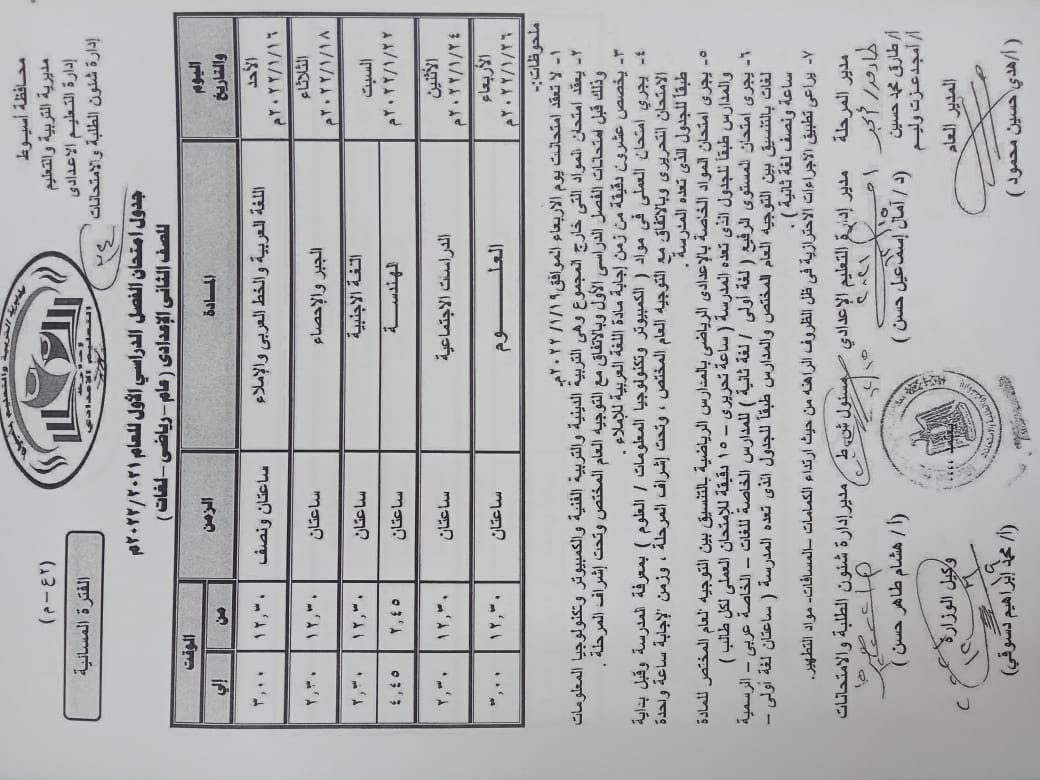 محافظة أسيوط
مديرية التربية والتعليم
إدارة التعليم الاعدادى
إدارة شئون الطلبة والامتحانات
(٢ع – م)
الفترة المسائية
جدول امتحان الفصل الدراسي الأول للعام ٢٠٢٢/٢٠٢١م
للصف الثانى الإعدادى (عام – رياضى – لغات)
اليوم والتاريخ المادة الزمن الوقت
من إلي
الأحد ٢٠٢٢/١/١٦م اللغة العربية والخط العربى والإملاء ساعتان ونصف ١٢,٣٠ ٣,٠٠
الثلاثاء ٢٠٢٢/١/١٨م الجبر والإحصاء ساعتان ١٢,٣٠ ٢,٣٠
السبت ٢٠٢٢/١/٢٢م اللغة الاجنبية ساعتان ١٢,٣٠ ٢,٣٠
الهندسة ساعتان ٢,٤٥ ٤,٤٥
الأثنين ٢٠٢٢/١/٢٤م الدراسات الاجتماعية ساعتان ١٢,٣٠ ٢,٣٠
الأربعاء ٢٠٢٢/١/٢٦م العلوم ساعتان ١٢,٣٠ ٣,٠٠
ملحوظات:-
١- لا تعقد امتحانات يوم الاربعاء الموافق ٢٠٢٢/١/١٩م
٢- يعقد امتحان المواد التى خارج المجموع وهى التربية الدينية والتربية الفنية والكمبيوتر وتكنولوجيا المعلومات
وذلك قبل امتحانات الفصل الدراسى الأول وبالاتفاق مع التوجيه العام المختص وتحت إشراف المرحلة .
٣- يخصص عشرون دقيقة من زمن إجابة مادة اللغة العربية للإملاء.
٤- يجرى امتحان العملى فى مواد ( الكمبيوتر وتكنولوجيا المعلومات / العلوم ) بمعرفة المدرسة وقبل بداية
الامتحان التحريرى وبالاتفاق مع التوجيه العام المختص ، وتحت إشراف المرحلة ، وزمن الإجابة ساعة واحدة
طبقاً للجدول الذى تعده المدرسة.
٥- يجرى امتحان المواد الخاصة بالإعدادى الرياضى بالمدارس الرياضية بالتنسيق بين التوجيه العام المختص للمادة
والمدارس طبقاً للجدول الذى تعده المدرسة ( ساعة تحريرى – ١٥ دقيقة للإمتحان العملى لكل طالب )
٦- يجرى امتحان المستوى الرفيع ( لغة أولى / لغة ثانية ) للمدارس الخاصة للغات – الخاصة عربى – الرسمية
لغات بالتنسيق بين التوجيه العام المختص والمدارس طبقاً للجدول الذى تعده المدرسة ( ساعتان لغة أولى –
ساعة ونصف لغة ثانية ) .
٧- يراعى تطبيق الاجراءات الاحترازية فى ظل الظروف الراهنة من حيث ارتداء الكمامات –المسافات- مواد التطهير.
مدير المرحلة مدير إدارة التعليم الإعدادي مسئول ش ط مدير إدارة شئون الطلبة والامتحانات
أ/ طارق محمد حسين
أ/ أمجد عزت وليم
(د / أمال إسماعيل حسن )
(أ / هشام طاهر حسن )
المدير العام
وكيل الوزارة
(أ/هدى حسين محمود )
(أ/ محمد ابراهيم دسوقي)